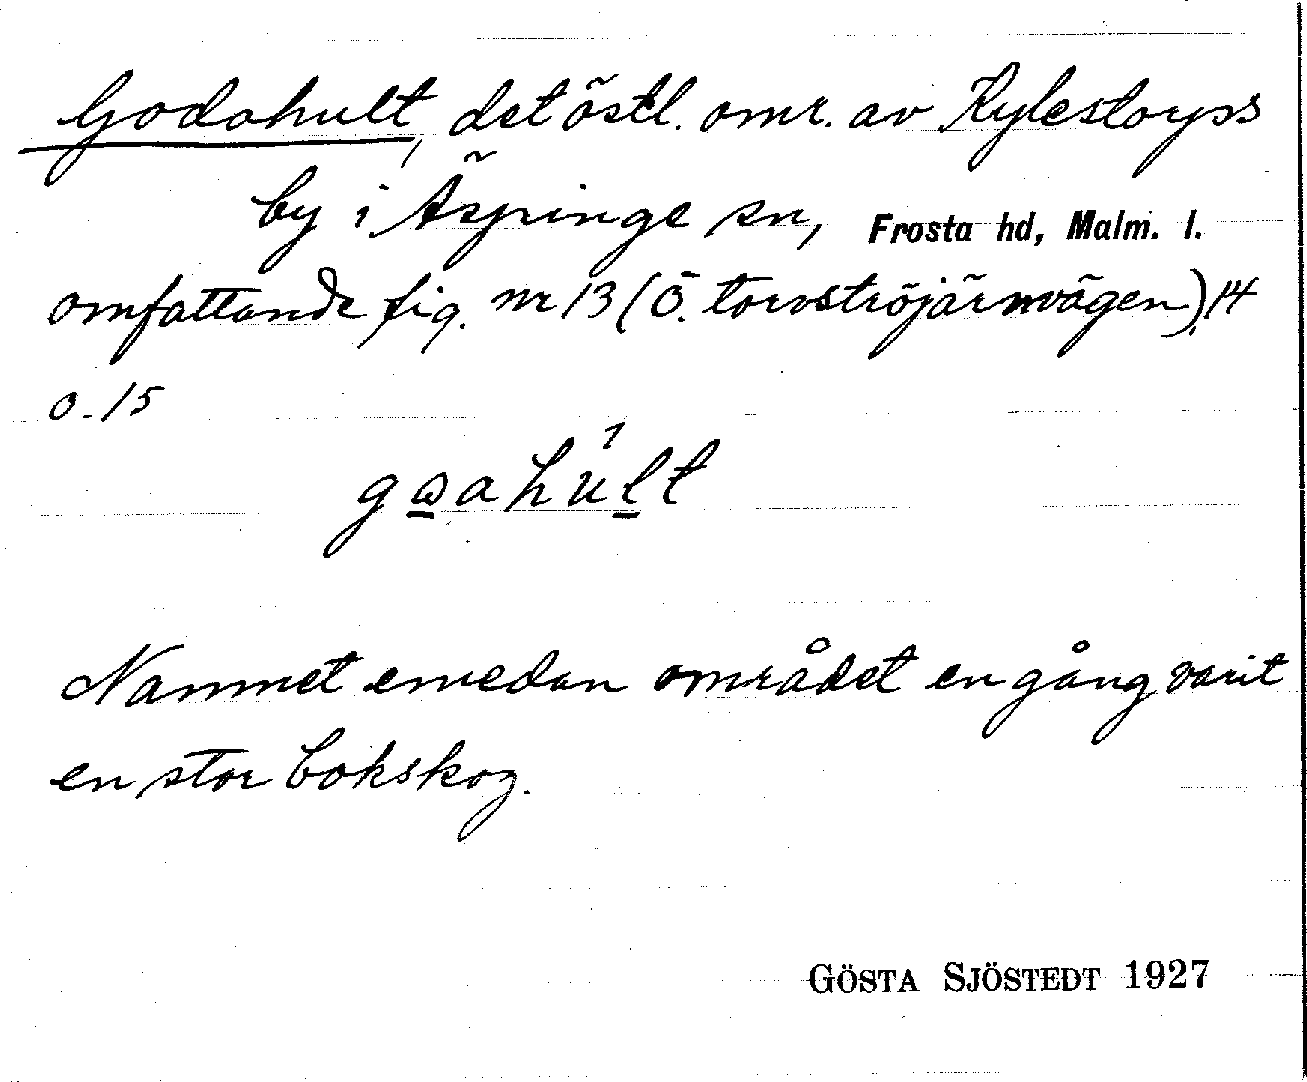 Godahult, det östl. omr. av Kylestorps
by i Äspinge sn, Frosta hd, Malm. l.
omfattande fig. nr 13 (Ö. torvströjärnvägen), 14
o. 15
Namnet emedan området en gång varit
en stor bokskog.
GÖSTA SJÖSTEDT 1927